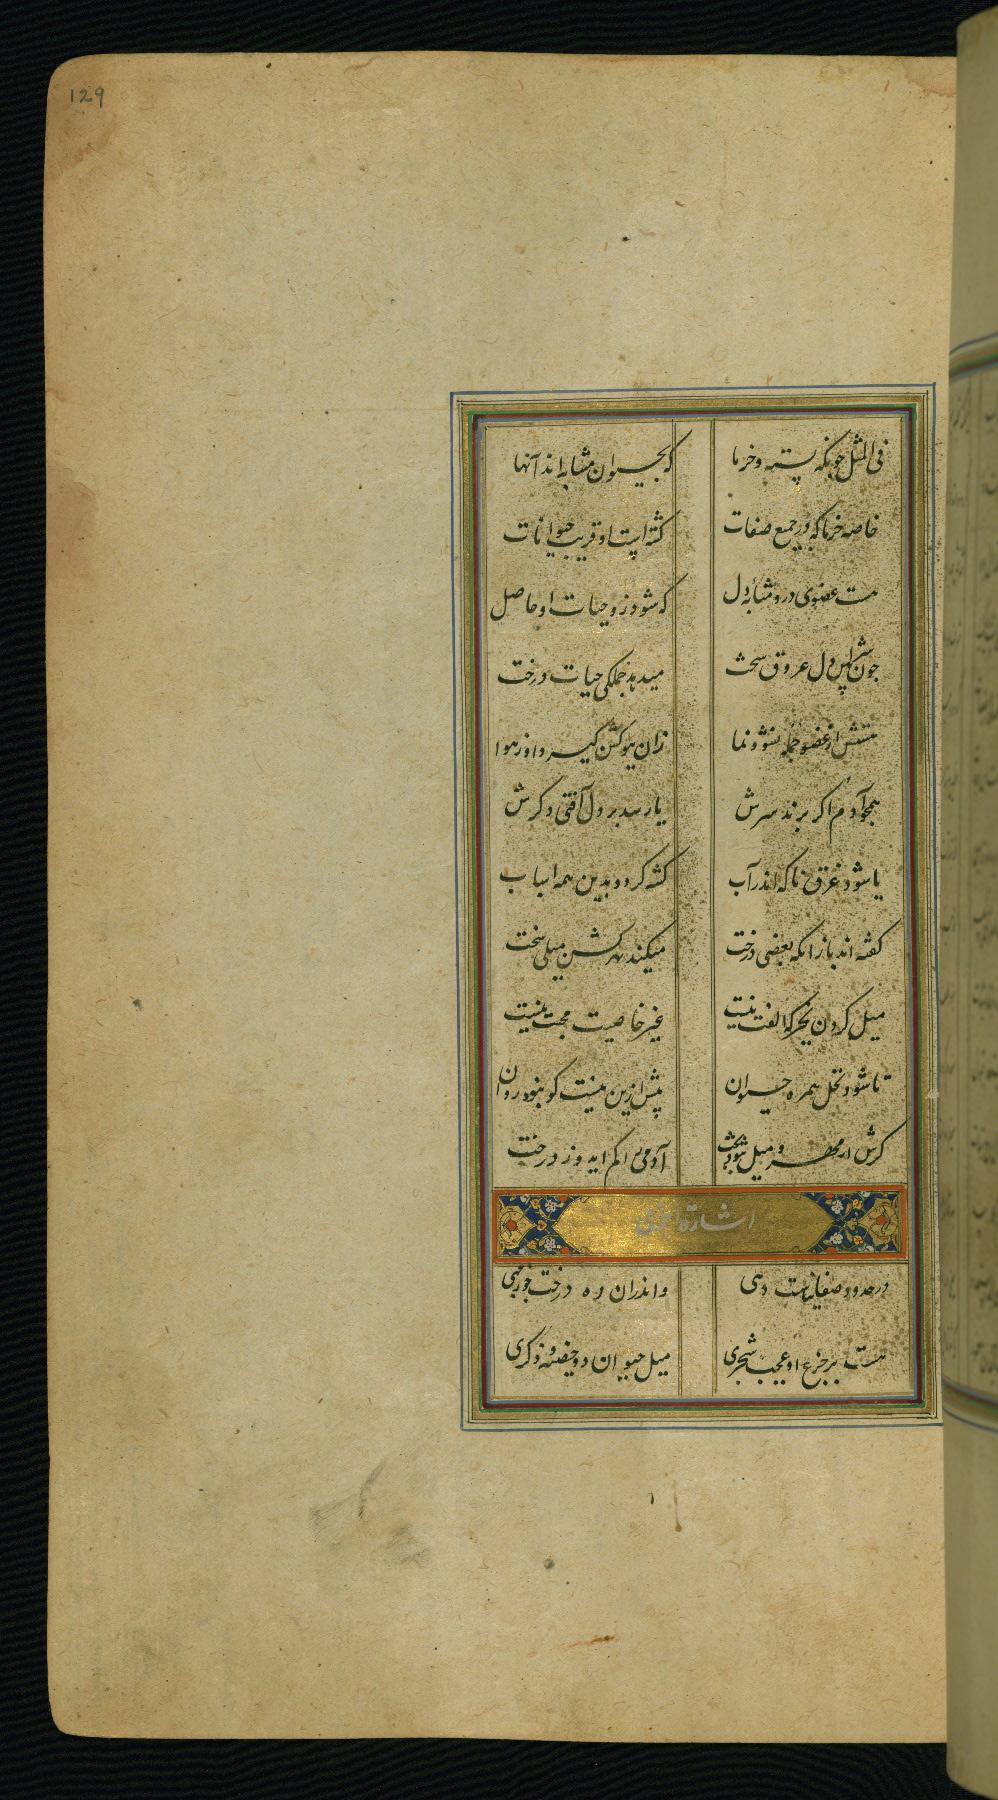 129
فی المثل جونکه پسته و خرما
که بحیوان مشابه اند آنها
خاصه خرما که در جمع صفات
کشته است او قریب حیوانات
هست عضوی درو مشابه دل
که شود زو حیات او حاصل
جون شراپین دل عروق سحت
میدهد جملکی حیات درخت
هستش از عضو جمله نشو و نما
زان نیوکش کیرد او ز هوا
همجو آدم اکر برند سرش
یا رسد بر دل آفتی دکرش
یا شود غرق ناکه اندر آب
کشته کردد بدین همه اسباب
کفته اند باز انکه بعضی درخت
میکند بهر کشن میلی سخت
میل کردن بجز که الفت نیست
غیر خاصیت محبت نیست
تا شود نخل همره حیوان
پیش ازین نیست کو نبود روان
کرش از مهر و میل نبود بخت
آدمی اکم اید و ز درخت
اشارة اخری
در حدود صفاهانست دهی
واندران ده درخت جوز بهی
هست بر جزع او عجب شجری
میل حیوان دو حفته و ذکری